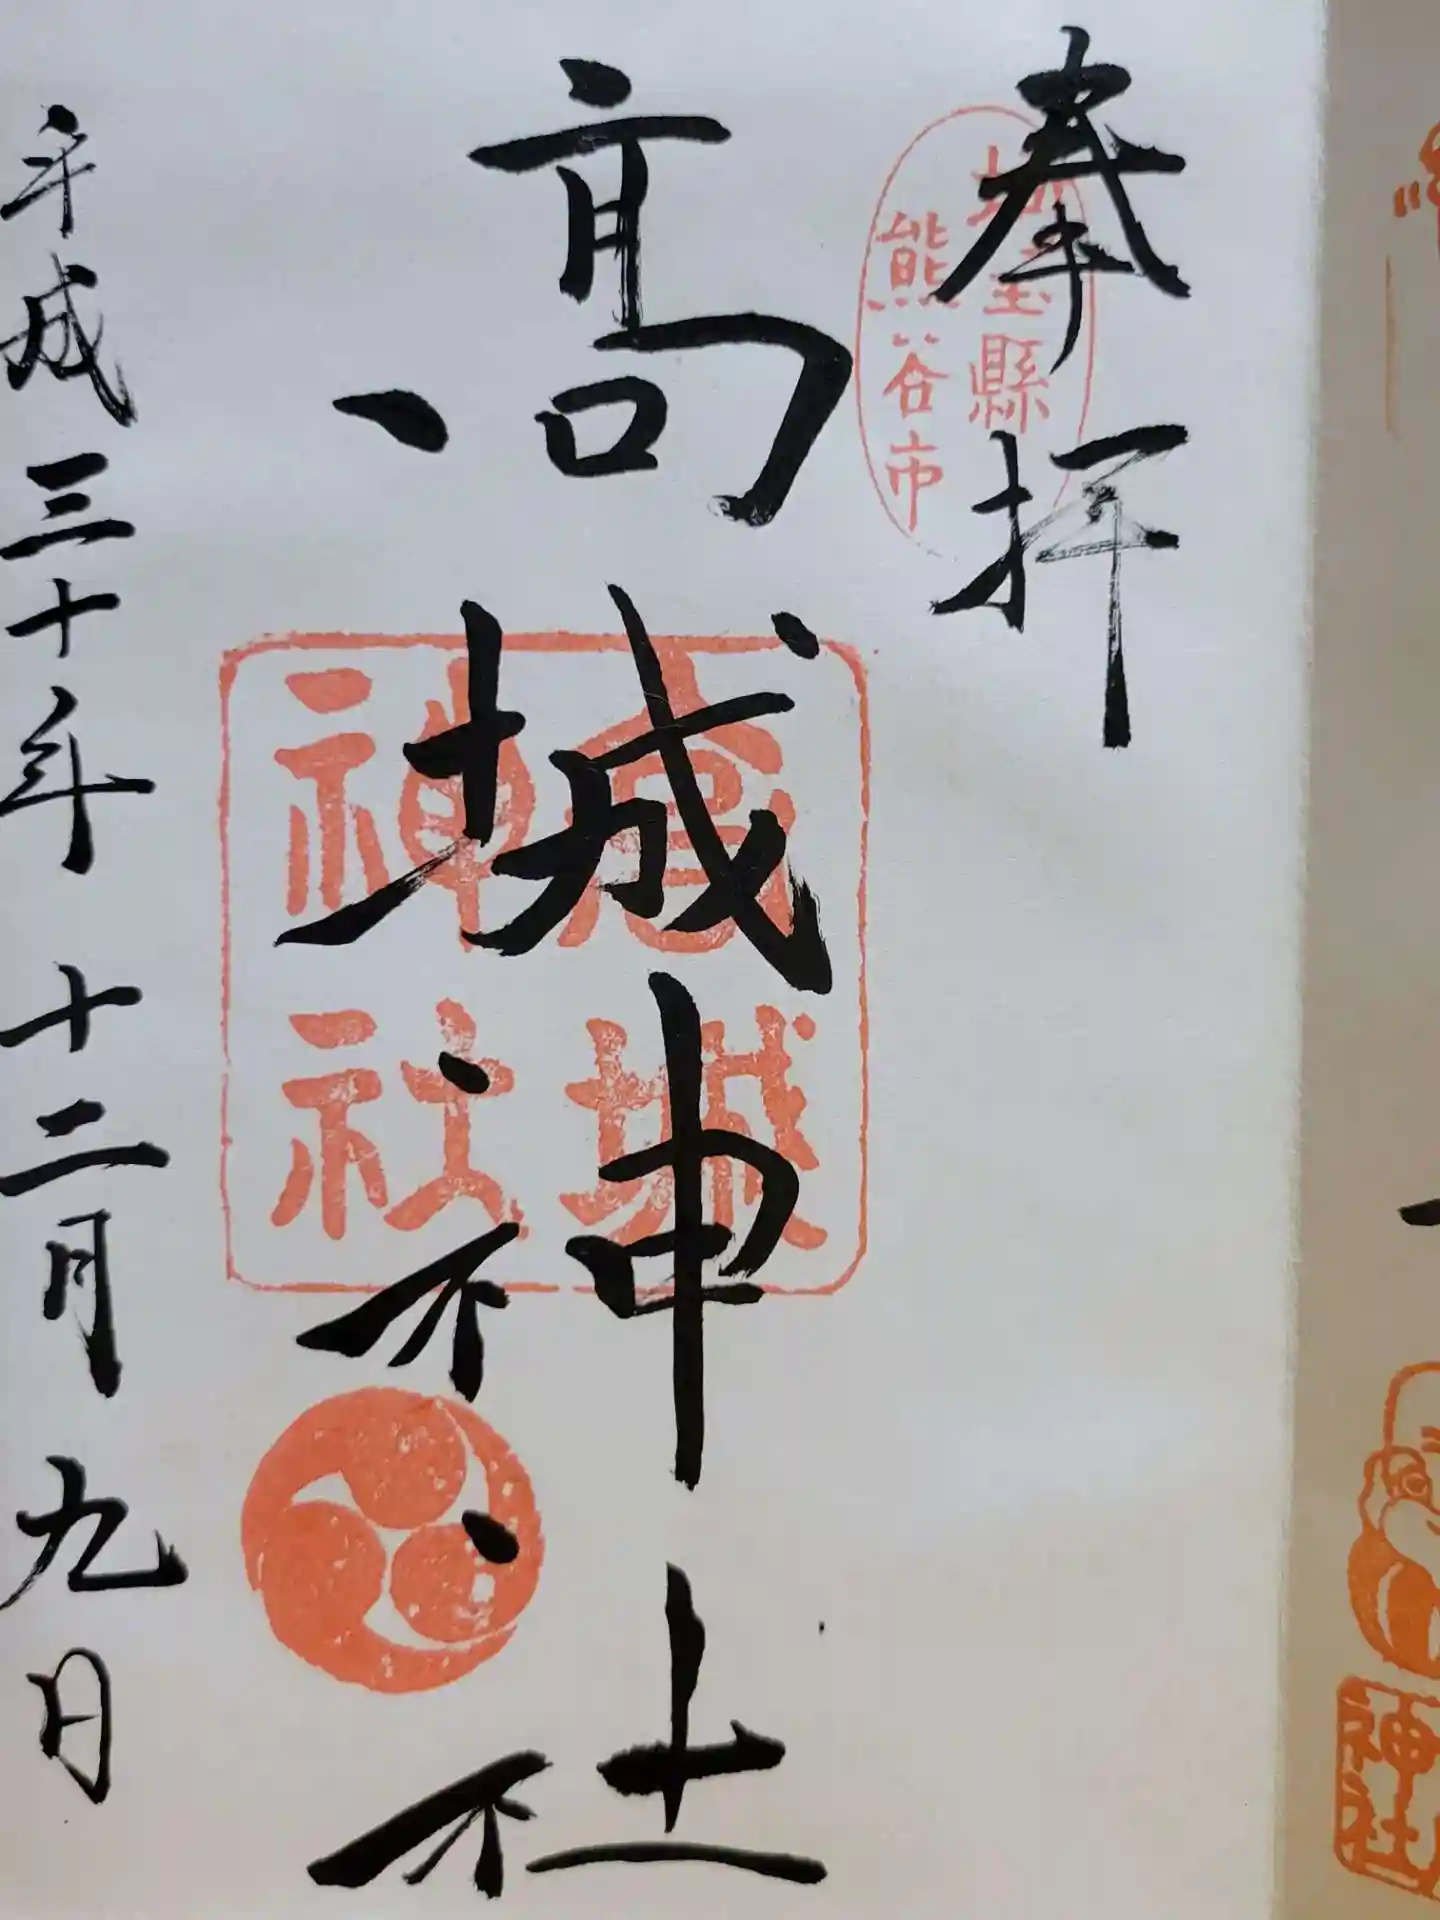 奉拝
埼玉縣
熊谷市
高城神社
高城
神社
平成三十年十二月九日
神社